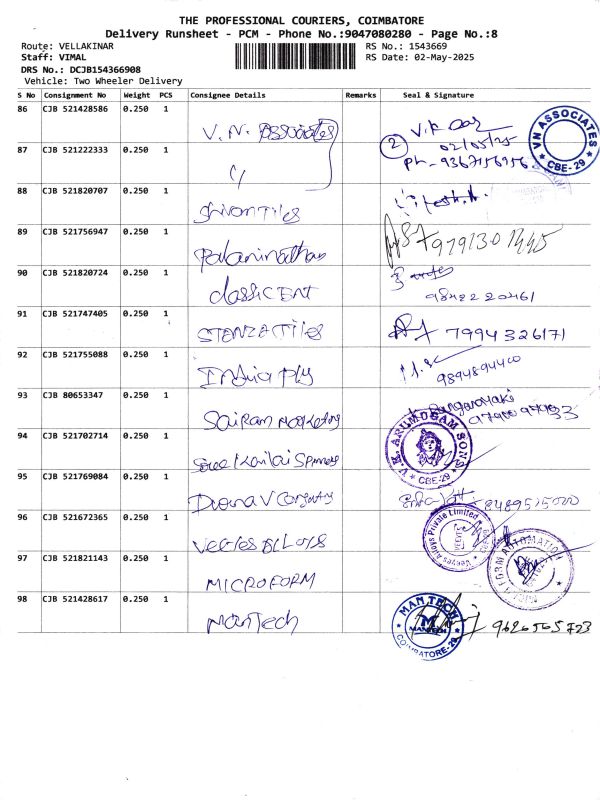 THE PROFESSIONAL COURIERS, COIMBATORE
Delivery Runsheet - PCM - Phone No.:9047080280 - Page No.:8
Route: VELLAKINAR RS No.: 1543669
Staff: VIMAL RS Date: 02-May-2025
DRS No.: DCJB154366908
Vehicle: Two Wheeler Delivery
S No Consignment No Weight PCS Consignee Details Remarks Seal & Signature
86 CJB 521428586 0.250 1 V. N. Associates
VN ASSOCIATES
CBE-29
87 CJB 521222333 0.250 1
2 02/05/25
Ph - 9367156956
88 CJB 521820707 0.250 1 Shivom Tiles
89 CJB 521756947 0.250 1 Palaninathan
90 CJB 521820724 0.250 1 classic ENT
91 CJB 521747405 0.250 1 STANZA Tiles 7994326171
92 CJB 521755088 0.250 1 India Ply 9894894400
93 CJB 80653347 0.250 1 Sairam Marketing
94 CJB 521702714 0.250 1
V.K. ARUMUGAM SONS
CBE-29
95 CJB 521769084 0.250 1 8489515020
96 CJB 521672365 0.250 1
Veeyes Alloys Private Limited
97 CJB 521821143 0.250 1 MICROFORM
FORM AUTOMATION
98 CJB 521428617 0.250 1 ManTech 9626565723
MAN TECH
M
MANTECH
COIMBATORE-29